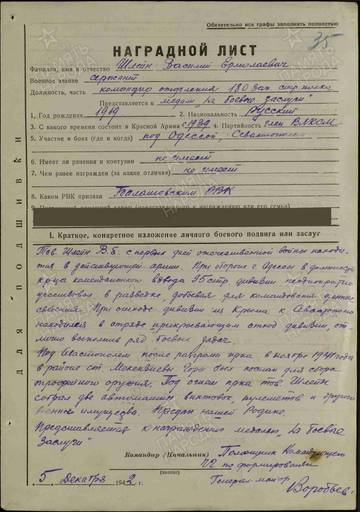 Обязательно все графы заполнять полностью
35
НАГРАДНОЙ ЛИСТ
Фамилия, имя и отчество Шлейн Василий
Военное звание сержант
Должность, часть командир отделения 180 зап. стр. полка
Представляется к медали „За боевые заслуги"
1. Год рождения 1919 2. Национальность русский
3. С какого времени состоит в Красной Армии с 1939 4. Партийность член ВЛКСМ
5. Участие в боях (где и когда) под Одессой, Севастополем
6. Имеет ли ранения и контузии не имеет
7. Чем ранее награжден (за какие отличия) не имеет
8. Каким РВК призван Балашовским РВК
I. Краткое, конкретное изложение личного боевого подвига или заслуг
Тов. Шлейн В.Е. с первых дней отечественной войны находи-
тся в действующей армии. При обороне г. Одессы в должности
командира взвода 95 стр. дивизии неоднократно
участвовал в разведке, добывая для командования ценные
сведения. При отходе дивизии из Крыма к Севастополю
находился в отряде прикрывающем отход дивизии, от-
лично выполнив ряд боевых задач.
Под Севастополем после разгрома врага в ноябре 1941 года
в районе был послан для сбора
трофейного оружия. Под огнем врага тов. Шлейн
собрал две автомашины винтовок, пулеметов и другого
военного имущества. Предан нашей Родине.
Представляется к награждению медалью „За боевые
заслуги"
Командир (Начальник) Помощник Командующего
по формированию
Генерал-майор
Воробьев
5 Декабря 1942 г.
ДЛЯ ПОДШИВКИ